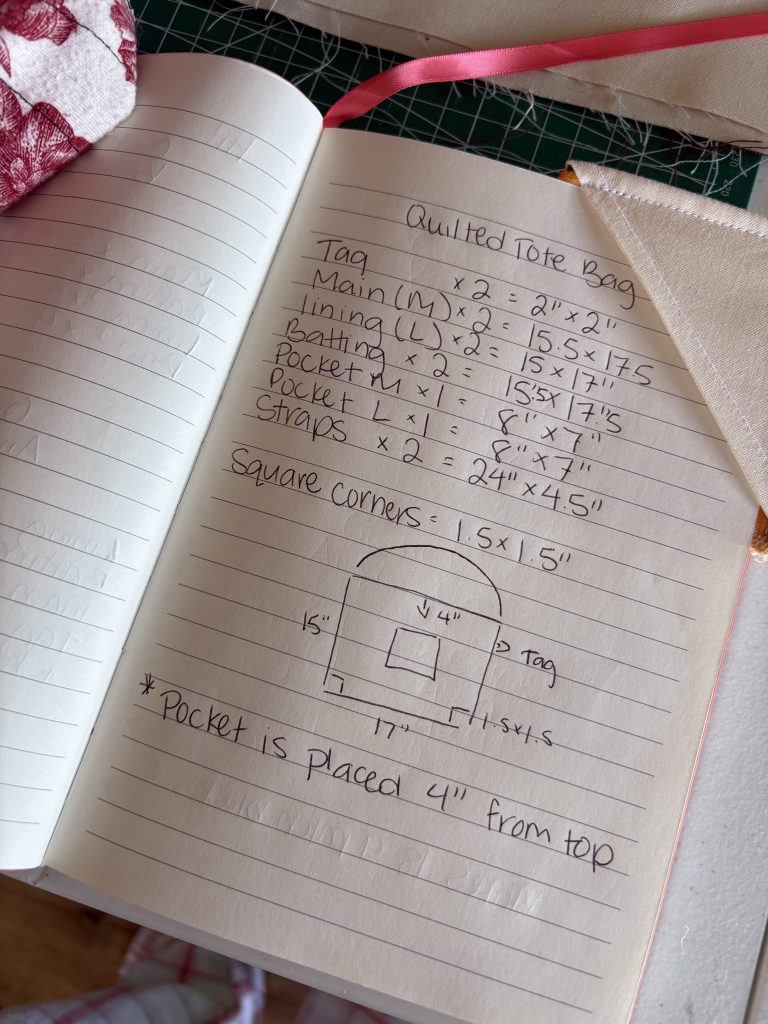 Quilted Tote Bag
Tag x2 = 2" x 2"
Main (M) x 2 = 15.5 x 17.5
lining (L) x 2 = 15 x 17"
Batting x 2 = 15.5 x 17.5"
Pocket M x 1 = 8" x 7"
Pocket L x 1 = 8" x 7"
Straps x 2 = 24" x 4.5"
Square corners = 1.5 x 1.5"
4"
15"
Tag
1.5x1.5
17"
* Pocket is placed 4" from top